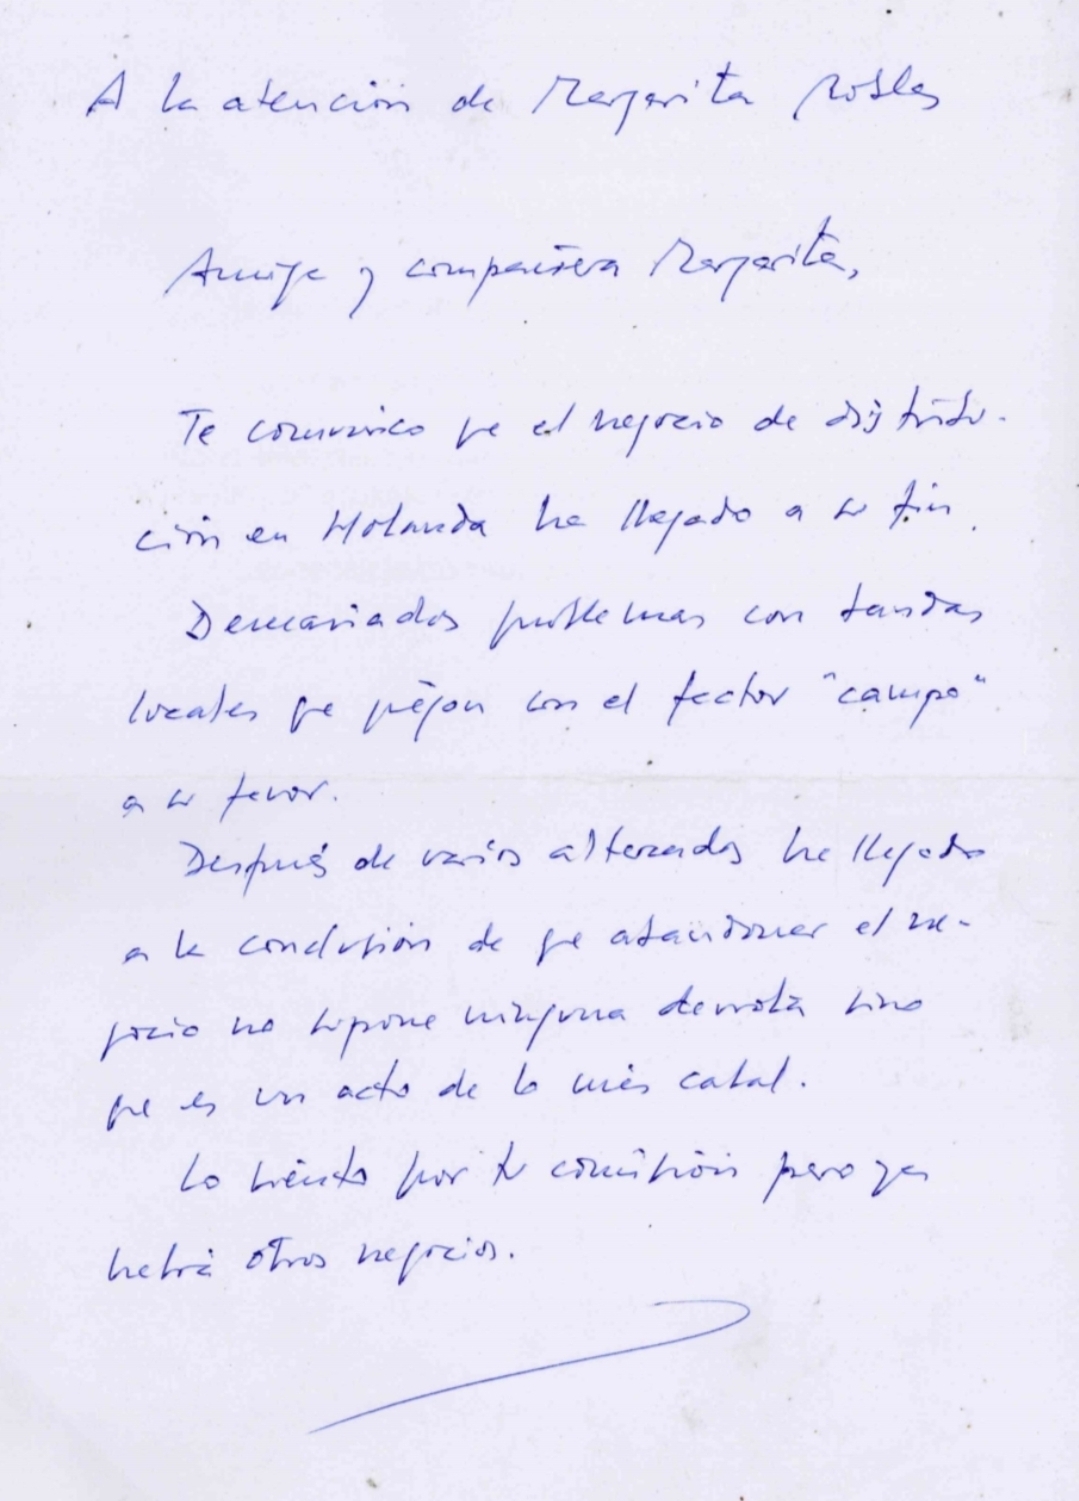 A la atención de Margarita Robles
Amiga y compañera Margarita,
Te comunico que el negocio de distribu-
ción en Holanda ha llegado a su fin.
Demasiados problemas con bandas
locales que juegan con el factor "campo"
a su favor.
Después de varios altercados he llegado
a la conclusión de que abandonar el ne-
gocio no supone ninguna derrota sino
que es un acto de lo más cabal.
Lo siento por tu comisión pero ya
habrá otros negocios.